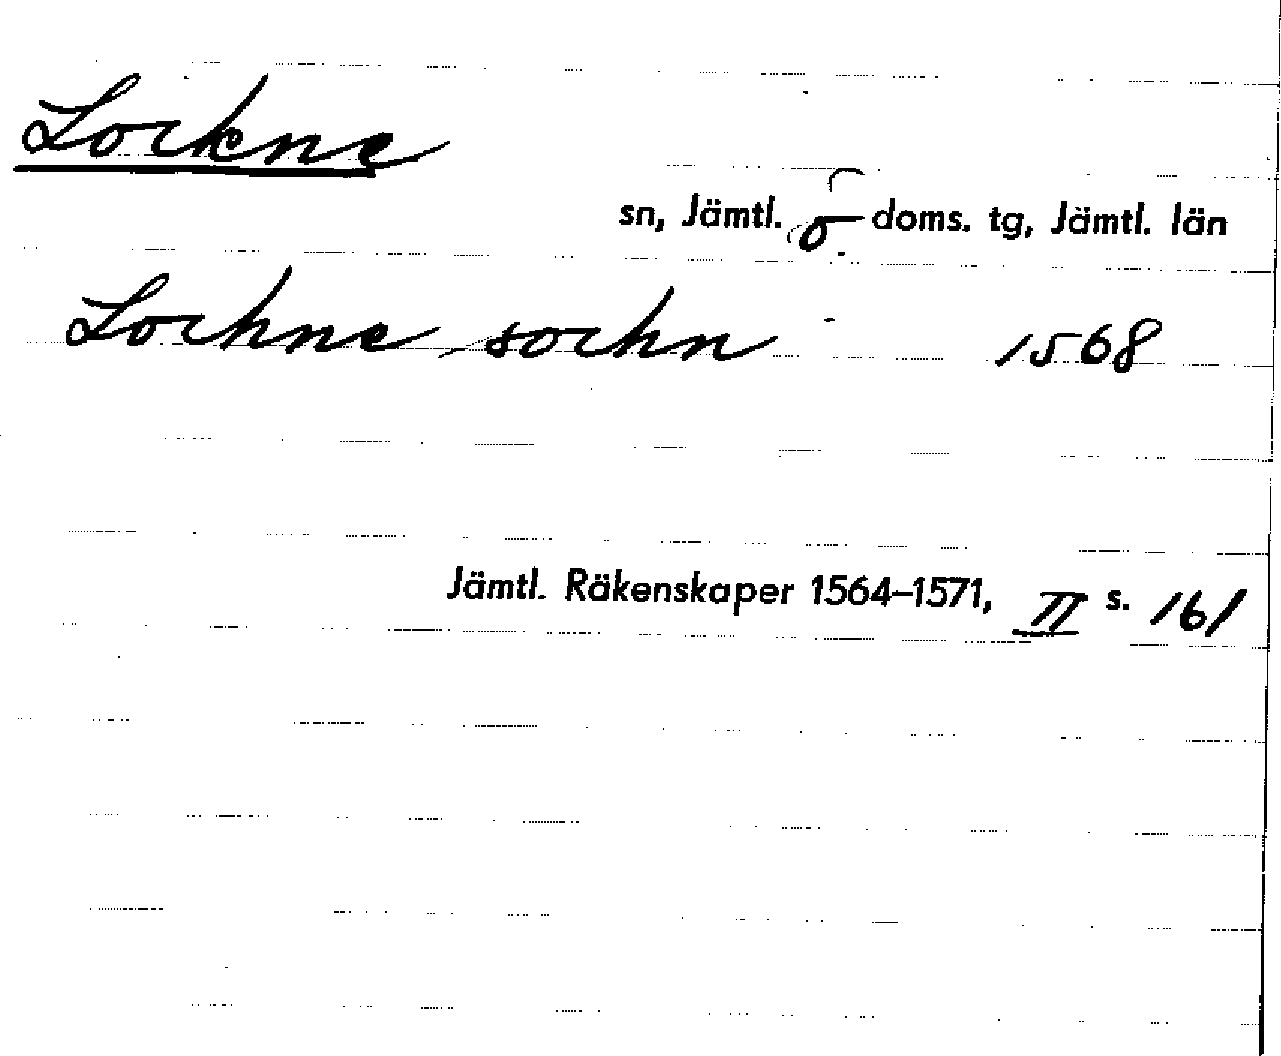 Lockne
sn, Jämtl. ö doms. tg, Jämtl. län
Lochne sochn 1568
Jämtl. Räkenskaper 1564–1571, II s. 161